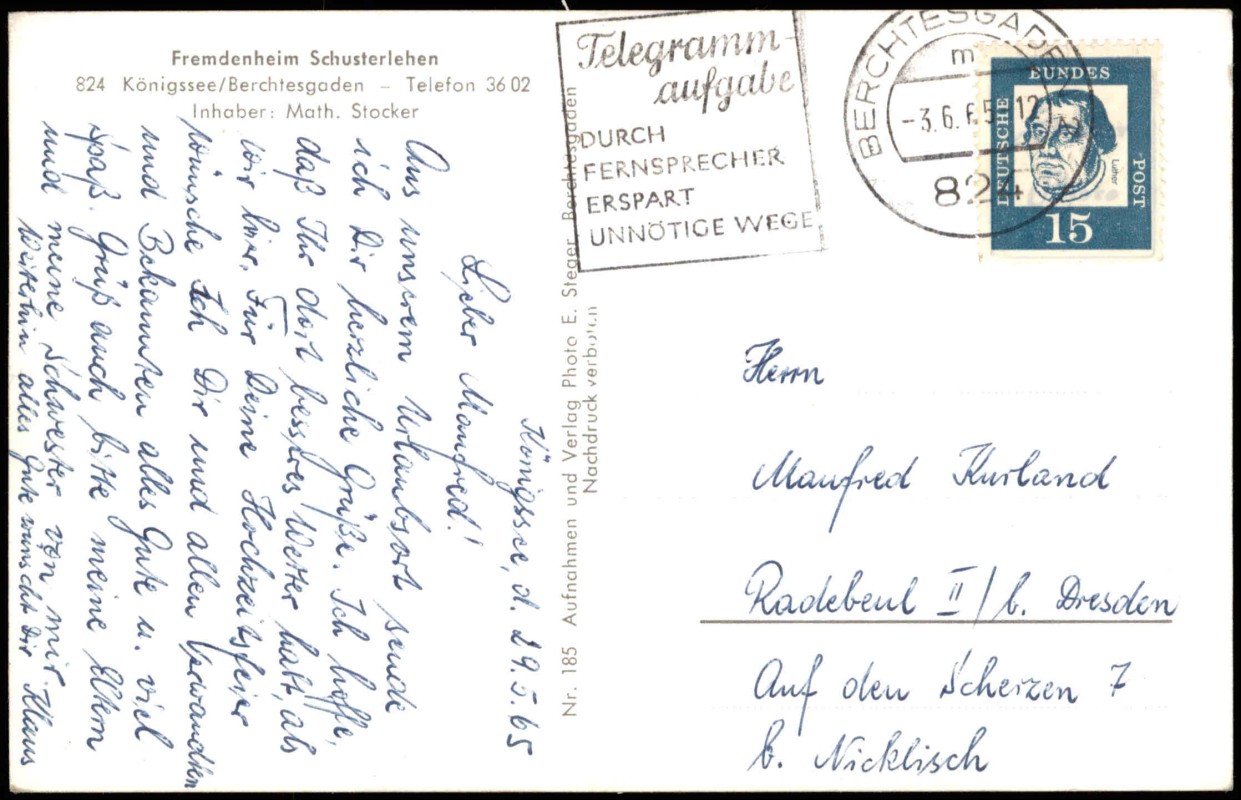 Fremdenheim Schusterlehen
824 Königssee/Berchtesgaden – Telefon 36 02
Inhaber: Math. Stocker
Königssee, d. 29.5.65
Lieber Manfred!
Aus unserem Urlaubsort sende
ich Dir herzliche Grüße. Ich hoffe,
daß Ihr dort bessres Wetter habt, als
wir hier. Für Deine Hochzeitsfeier
wünsche Ich Dir und allen Verwandten
und Bekannten alles Gute u. viel
Spaß. Grüß auch bitte meine Eltern
und meine Schwester von mir.
Weiterhin alles Gute wünscht Dir Klaus
Nr. 185 Aufnahmen und Verlag Photo E. Steger, Berchtesgaden
Nachdruck verboten
Telegramm-
aufgabe
DURCH
FERNSPRECHER
ERSPART
UNNÖTIGE WEGE
BERCHTESGADEN
m
-3.6.65 12
824
DEUTSCHE
BUNDES
POST
Luther
15
Herrn
Manfred Kurland
Radebeul II/b. Dresden
Auf den Scherzen 7
b. Nicklisch